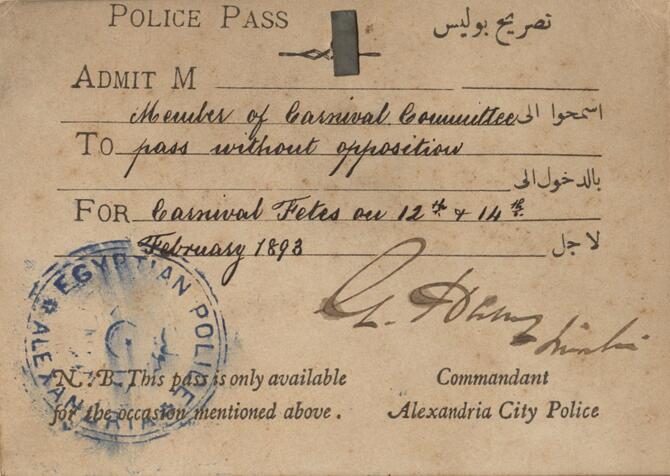 POLICE PASS تصريح بوليس
ADMIT M
Member of Carnival Committee اسمحوا الى
TO pass without opposition
بالدخول الى
FOR Carnival Fetes on 12th & 14th
February 1893 لاجل
EGYPTIAN POLICE
ALEXANDRIA
N. B. This pass is only available
for the occasion mentioned above.
Commandant
Alexandria City Police